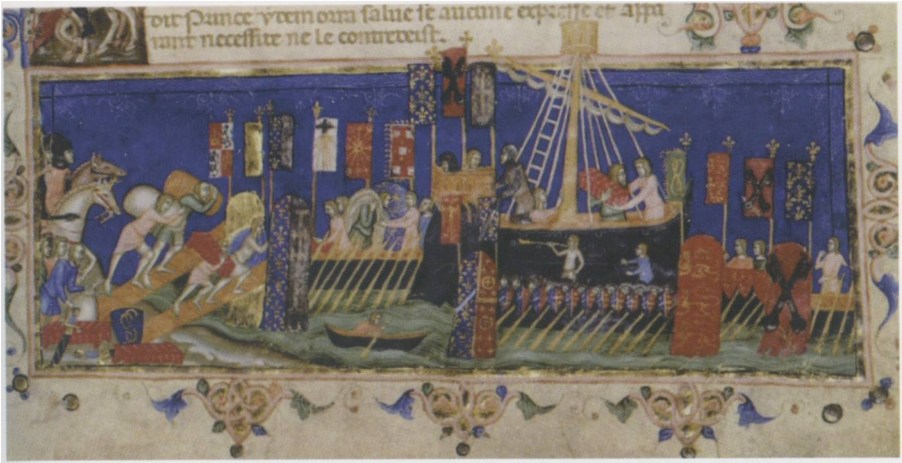 dit Prince ytem otra salue se aucune expresse et appa
rant necessite ne le contreteist.